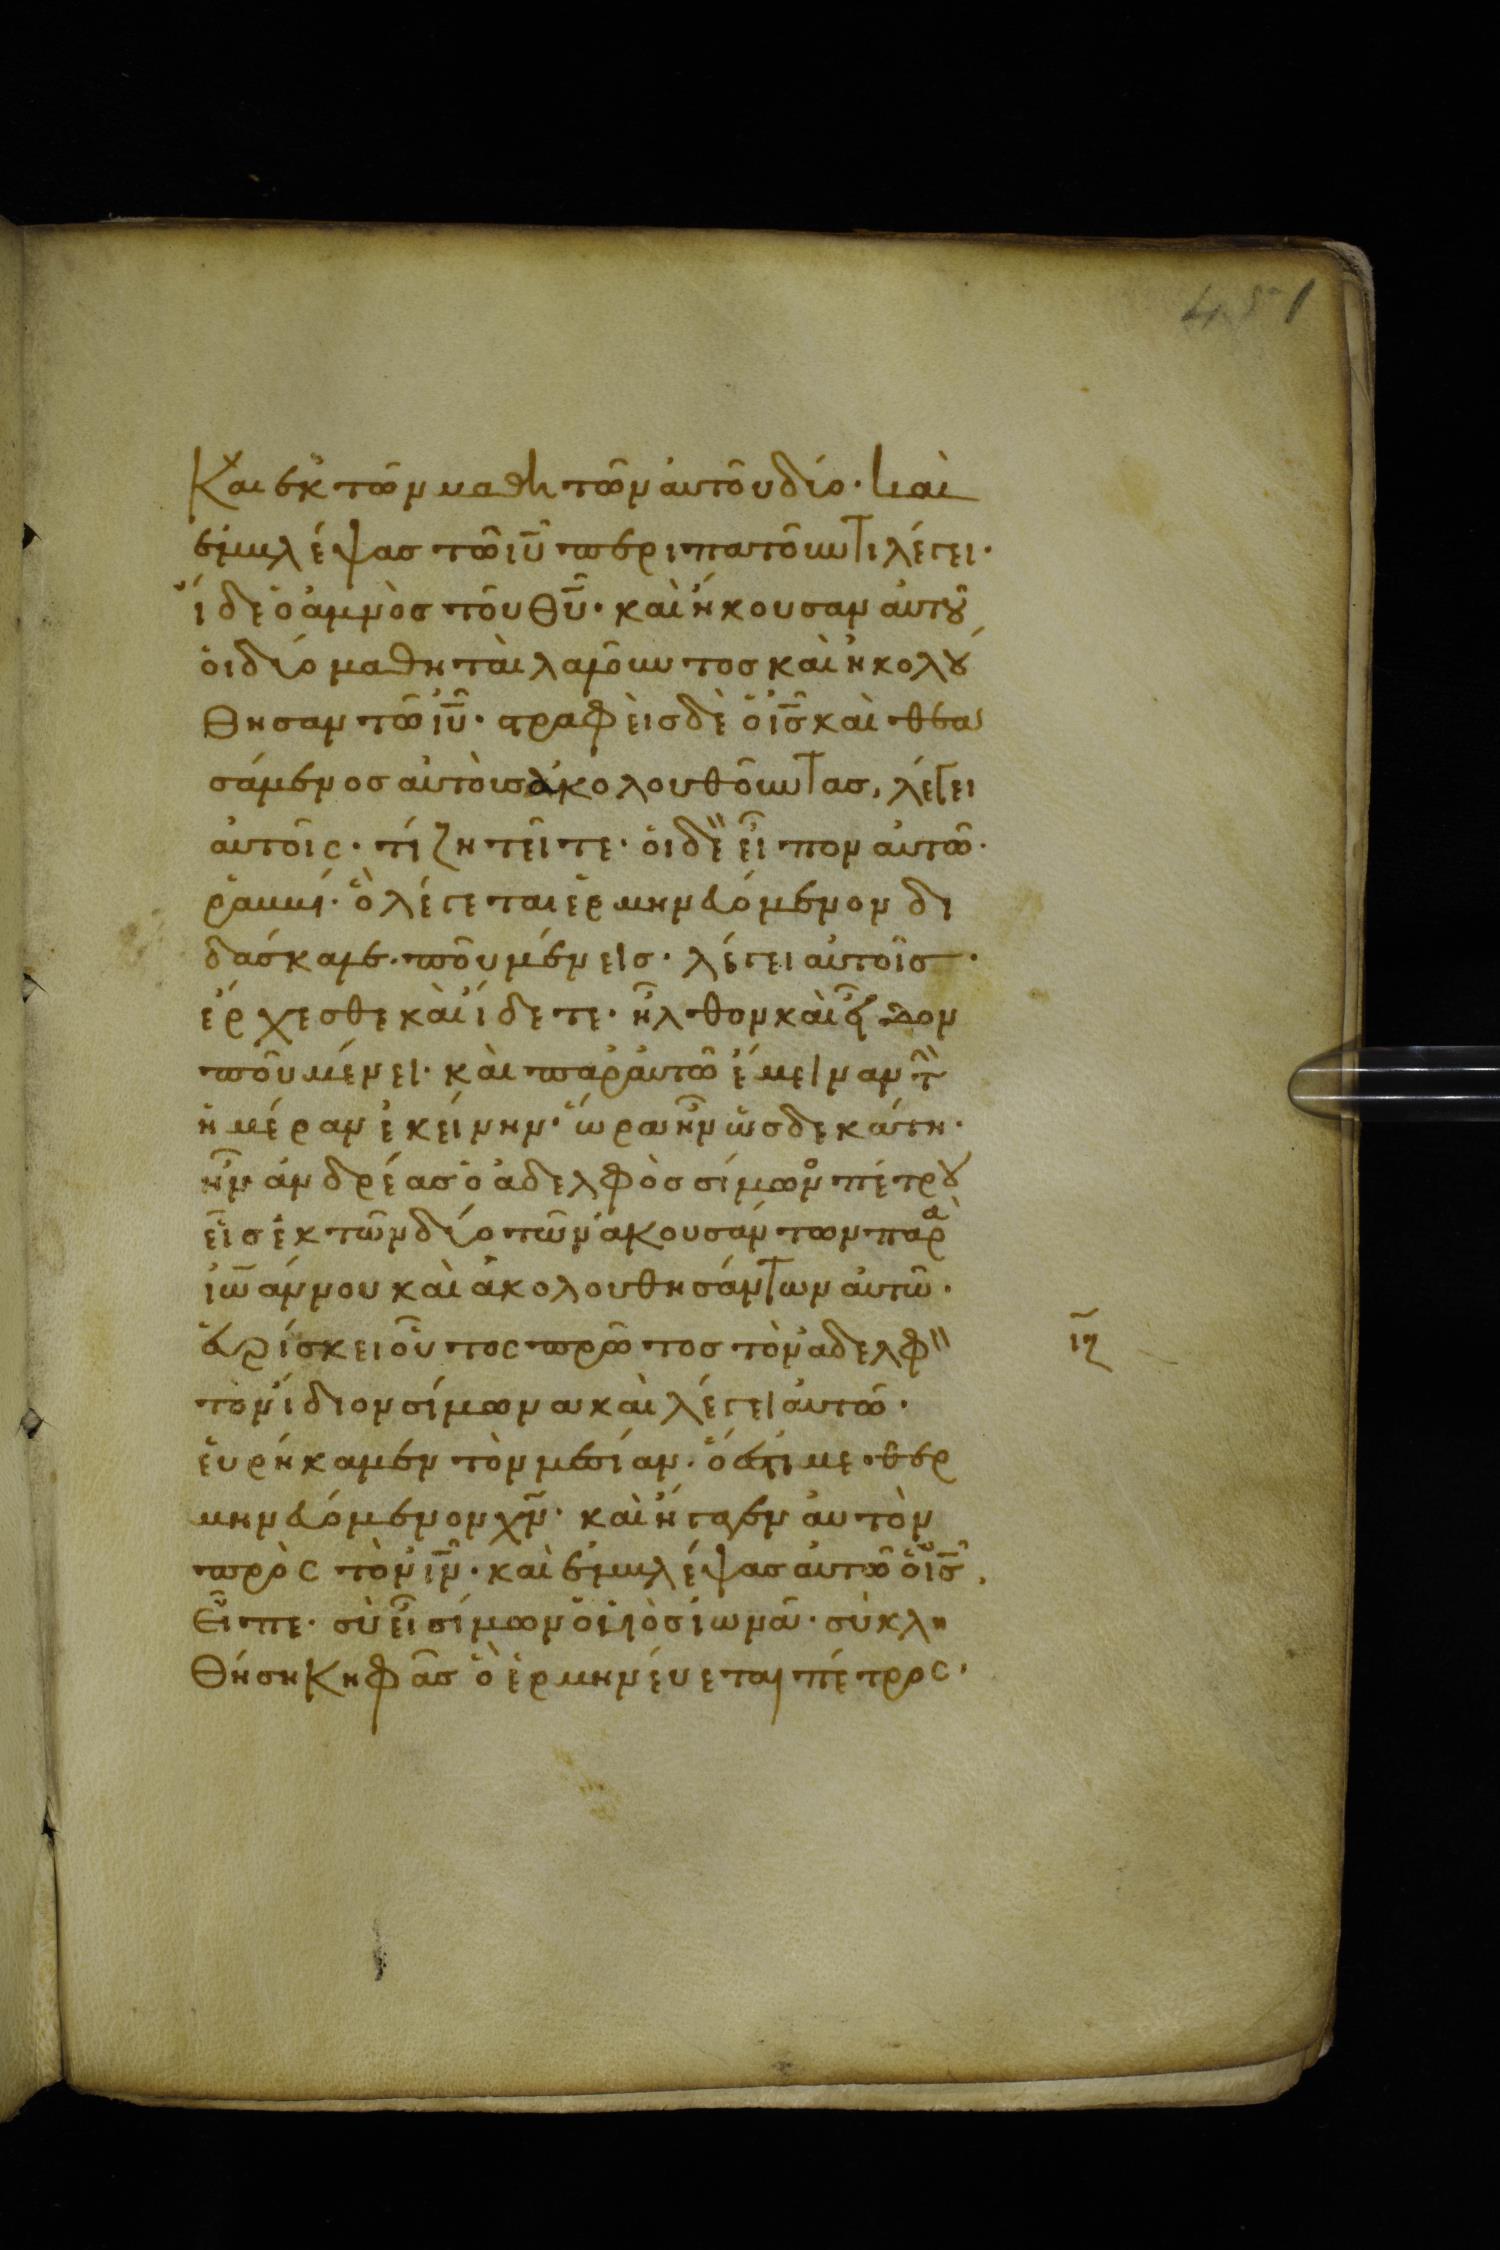 451
Και ἐκ τῶν μαθητῶν ἀυτοῦ δύο· και
ἐμβλέψας τῶ ιῦ περιπατοῦντι λέγει·
ἴδε ὁ ἀμνὸς τοῦ θῦ· καὶ ἤκουσαν ἀυτοῦ
ὁι δύο μαθηταὶ λαλοῦντος καὶ ἠκολού
θησαν τῶ ιῦ· στραφεὶς δὲ ὁ ις καὶ θεα
σάμενος ἀυτοὺς ἀκολουθοῦντας, λέγει
ἀυτοῖς· τί ζητεῖτε· ὁι δὲ εἶπον ἀυτῶ·
ῥαββί· ὃ λέγεται ἑρμηνευόμενον δι
δάσκαλε· ποῦ μένεις· λέγει αὐτοῖς·
ἔρχεσθε καὶ ἴδετε· ἦλθον καὶ εἶδον
ποῦ μένει· καὶ παρ αὐτῶ ἔμειναν τὴν
ἡμέραν ἐκείνην· ὥρα ἦν ὡς δεκάτη·
ἦν ἀνδρέας ὁ ἀδελφὸς σίμωνος πέτρου
εἷς ἐκ τῶν δύο τῶν ἀκουσάντων παρὰ
ἰωάννου καὶ ἀκολουθησάντων ἀυτῶ·
ἑυρίσκει οὗτος πρῶτος τὸν ἀδελφὸν
τὸν ἴδιον σίμωνα καὶ λέγει ἀυτῶ·
ἑυρήκαμεν τὸν μεσίαν· ὅ ἐστι μεθερ
μηνευόμενον χν· καὶ ἤγαγεν ἀυτὸν
πρὸς τὸν ιν· καὶ ἐμβλέψας ἀυτῶ ὁ ις,
Εἶπε· σὺ εἶ σίμων ὁ υἱὸς ἰωνᾶ· σὺ κλη
θήση Κηφᾶς ὃ ἑρμηνέυεται πέτρος·
ιη